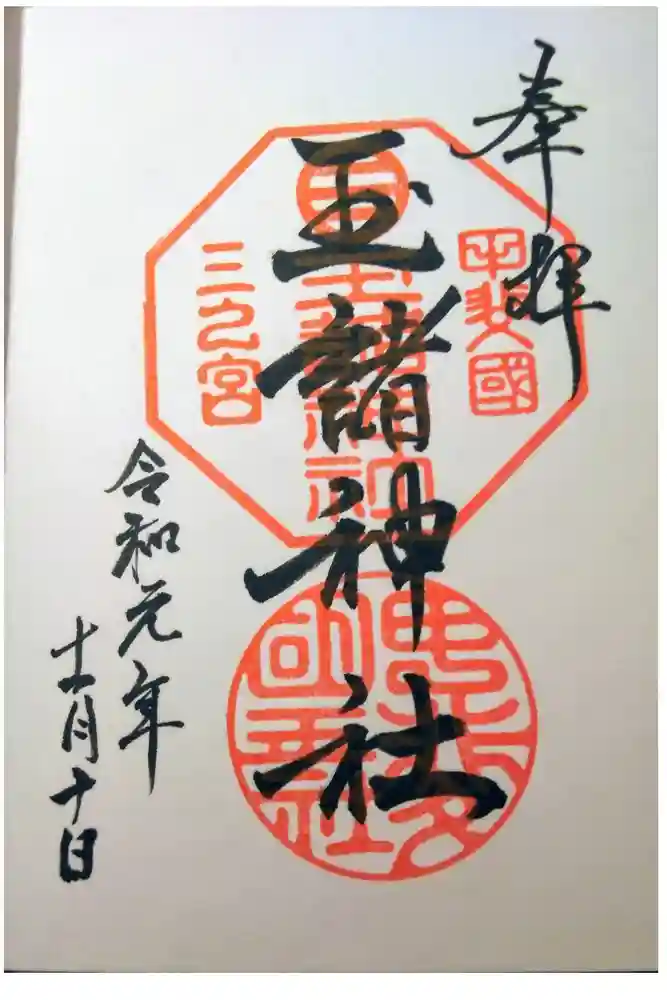 奉拝
甲斐國
玉諸神社
三之宮
令和元年
十二月十日